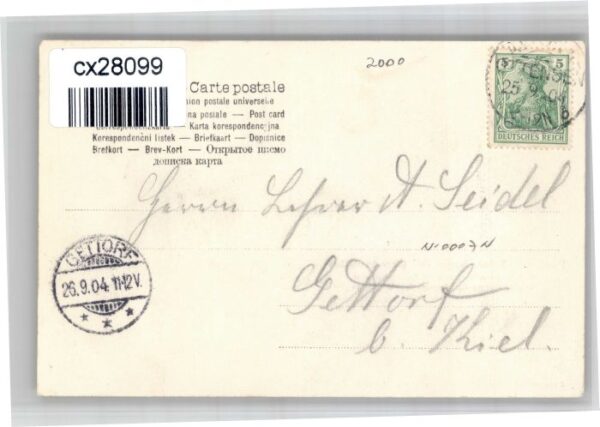 cx28099
2000
Carte postale
ion postale universelle
na postale — Post card
Correspondenzkarte — Karta korespondencyjna
Korespondenční lístek — Briefkaart — Dopisnice
Brefkort — Brev-Kort — Открытое письмо
дописна карта
5 5
OTTENSEN
25.9.04
b
DEUTSCHES REICH
Herrn Lehrer A. Seidel
N-0007N
Gettorf
b. Kiel.
GETTORF
26.9.04 11-12V.